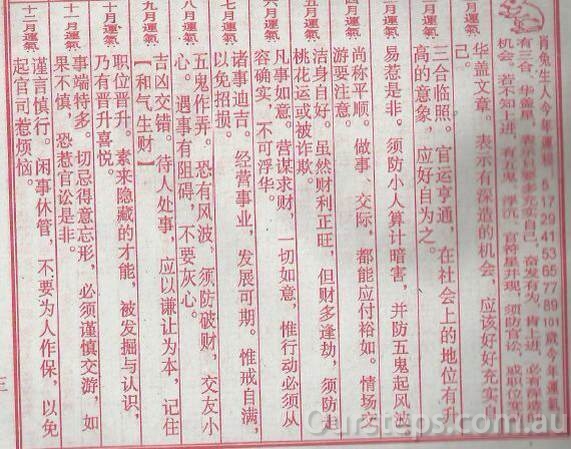 肖兔生人今年運程 5 17 29 41 53 65 77 89 101 歲今年運氣
有三合、华盖星，表示自要多充实自己，奋发有为，肯上进，必有深造
机会，若不知上进，有五鬼、浮沉、官符星并现，须防官讼，或职位变
月運氣
华盖文章。表示有深造的机会，应该好好充实
己。
月運氣
三合临照。官运亨通，在社会上的地位有升
高的意象，应好自为之。
三月運氣
易惹是非。须防小人算计暗害，并防五鬼起风波
四月運氣
尚称平顺。做事、交际，都能应付裕如。情场交
游要注意。
五月運氣
洁身自好。虽然财利正旺，但财多逢劫，须防走
桃花运或被诈欺。
六月運氣
凡事如意。营谋求财，一切如意，惟行动必须从
容确实，不可浮华。
七月運氣
诸事迪吉。经营事业，发展可期。惟戒自满，
以免招损。
八月運氣
五鬼作弄。恐有风波，须防破财，交友小
心。遇事有阻碍，不要灰心。
九月運氣
吉凶交错。待人处事，应以谦让为本，记住
【和气生财】
十月運氣
职位晋升。素来隐藏的才能，被发掘与认识，
乃有晋升喜悦。
十一月運氣
事端特多。切忌得意忘形，必须谨慎交游，如
果不慎，恐惹官讼是非。
十二月運氣
谨言慎行。闲事休管，不要为人作保，以免
起官司惹烦恼。
三
Oursteps.com.au